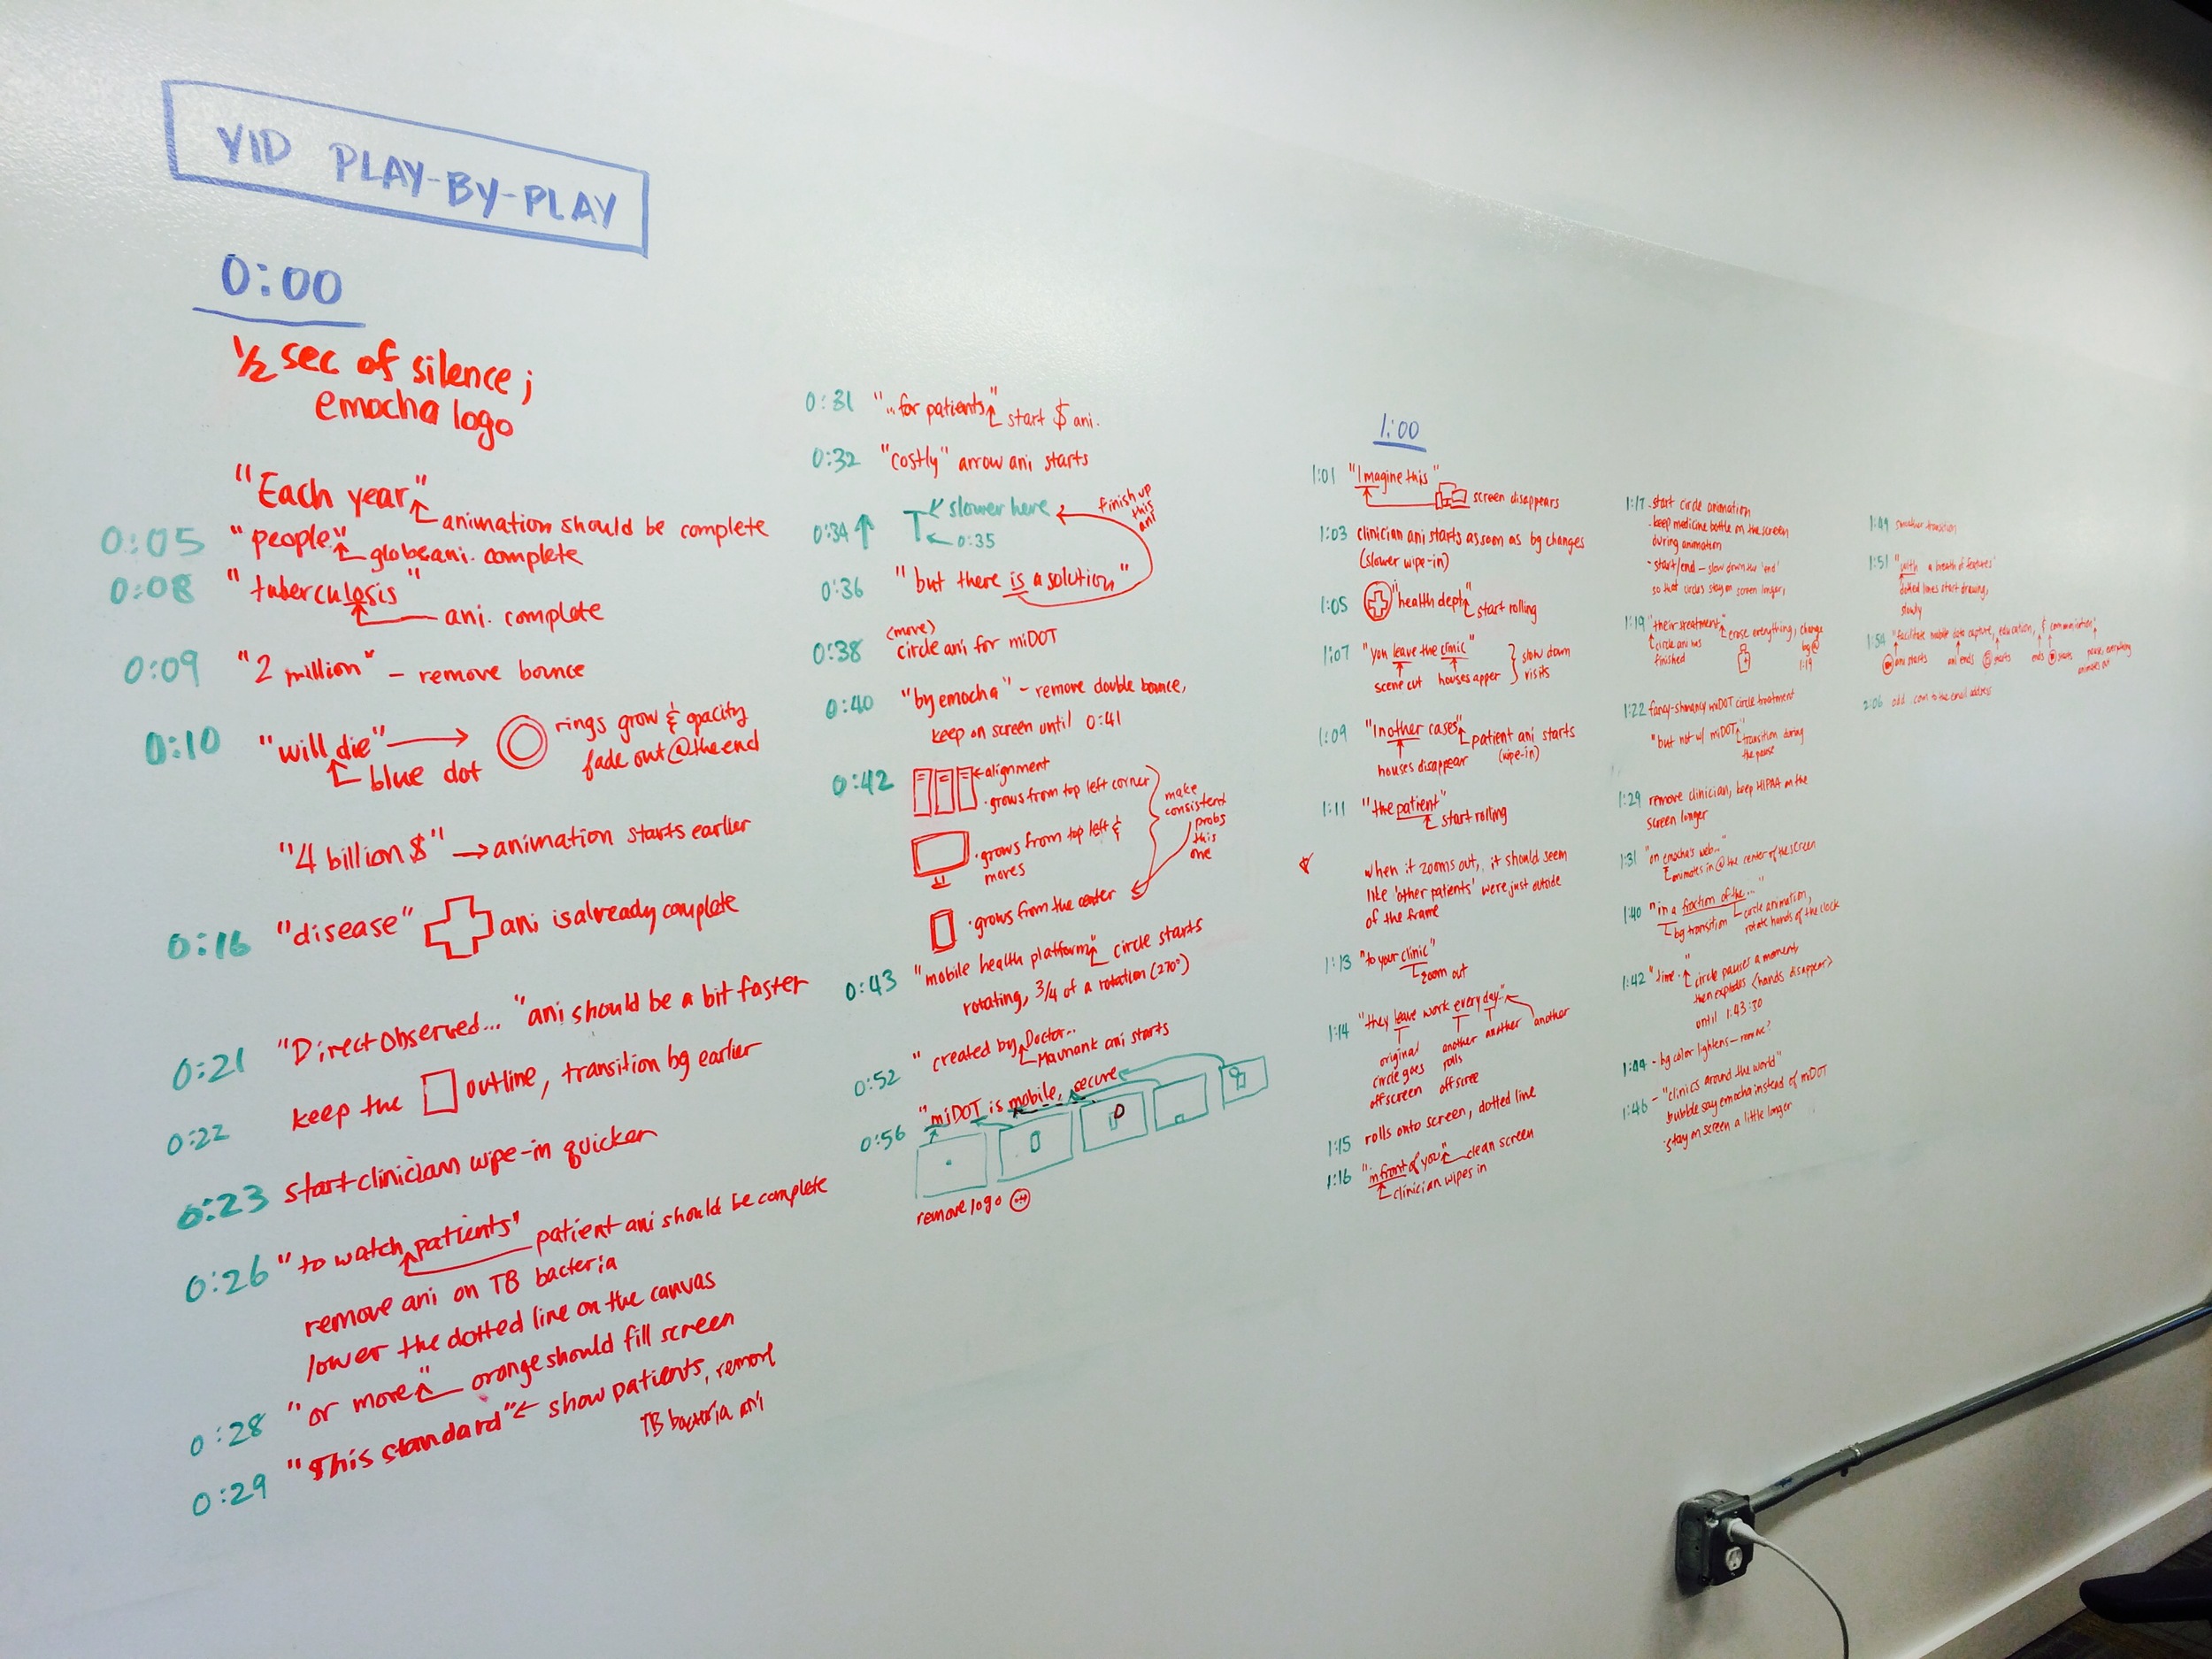 VID PLAY-BY-PLAY
0:00
1/2 sec of silence;
emocha logo
"Each year"
animation should be complete
0:05 "people"
globe ani. complete
0:08 "tuberculosis"
ani. complete
0:09 "2 million" - remove bounce
0:10 "will die" → rings grow & opacity
fade out @ the end
blue dot
"4 billion $" → animation starts earlier
0:16 "disease" ani is already complete
0:21 "Direct Observed..." ani should be a bit faster
0:22 keep the outline, transition bg earlier
0:23 start clinician wipe-in quicker
0:26 "to watch patients" patient ani should be complete
remove ani on TB bacteria
lower the dotted line on the canvas
0:28 "or more" orange should fill screen
0:29 "This standard" ← show patients, remove
TB bacteria ani
0:31 "...for patients" start $ ani.
0:32 "costly" arrow ani starts
0:34 ↑ slower here
0:35
finish up
this
ani
0:36 "but there is a solution"
(move)
0:38 circle ani for miDOT
0:40 "by emocha" - remove double bounce,
keep on screen until 0:41
0:42 alignment
· grows from top left corner
· grows from top left &
moves
· grows from the center
make
consistent
probs
this
one
0:43 "mobile health platform" circle starts
rotating, 3/4 of a rotation (270°)
0:52 "created by Doctor...
Maunank ani starts
0:56 "miDOT is mobile, secure
remove logo
1:00
1:01 "Imagine this"
screen disappears
1:03 clinician ani starts as soon as bg changes
(slower wipe-in)
1:05 "health dept" start rolling
1:07 "you leave the clinic"
scene cut houses apper
slow down
visits
1:09 "In other cases" patient ani starts
(wipe-in)
houses disappear
1:11 "the patient"
start rolling
when it zooms out, it should seem
like 'other patients' were just outside
of the frame
1:13 "to your clinic"
zoom out
1:14 "they leave work every day."
original
circle goes
offscreen
another
rolls
offscree
another
another
1:15 rolls onto screen, dotted line
1:16 "in front of you" clean screen
clinician wipes in
1:17 - start circle animation
- keep medicine bottle on the screen
during animation
- start/end - slow down the 'end'
so that circles stay on screen longer,
1:19 "their treatment" erase everything, change
bg @
1:19
circle ani has
finished
1:22 fancy-shmancy miDOT circle treatment
"but not w/ miDOT" transition during
the pause
1:29 remove clinician, keep HIPAA on the
screen longer
1:31 "on emocha's web..."
animates in @ the center of the screen
1:40 "in a fraction of the..."
bg transition circle animation,
rotate hands of the clock
1:42 "time." circle pauses a moment
then explodes <hands disappear>
until 1:43:30
1:44 - bg color lightens - remove?
1:46 - "clinics around the world"
bubble say emocha instead of miDOT
stay on screen a little longer
1:49 smoother transition
1:51 "with a breath of features"
dotted lines start drawing,
slowly
1:54 "facilitate mobile data capture, education, & communication"
ani starts ani ends starts ends starts
2:06 add .com to the email address